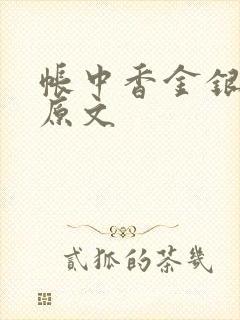 帐中香金银
原文
贰狐的茶几